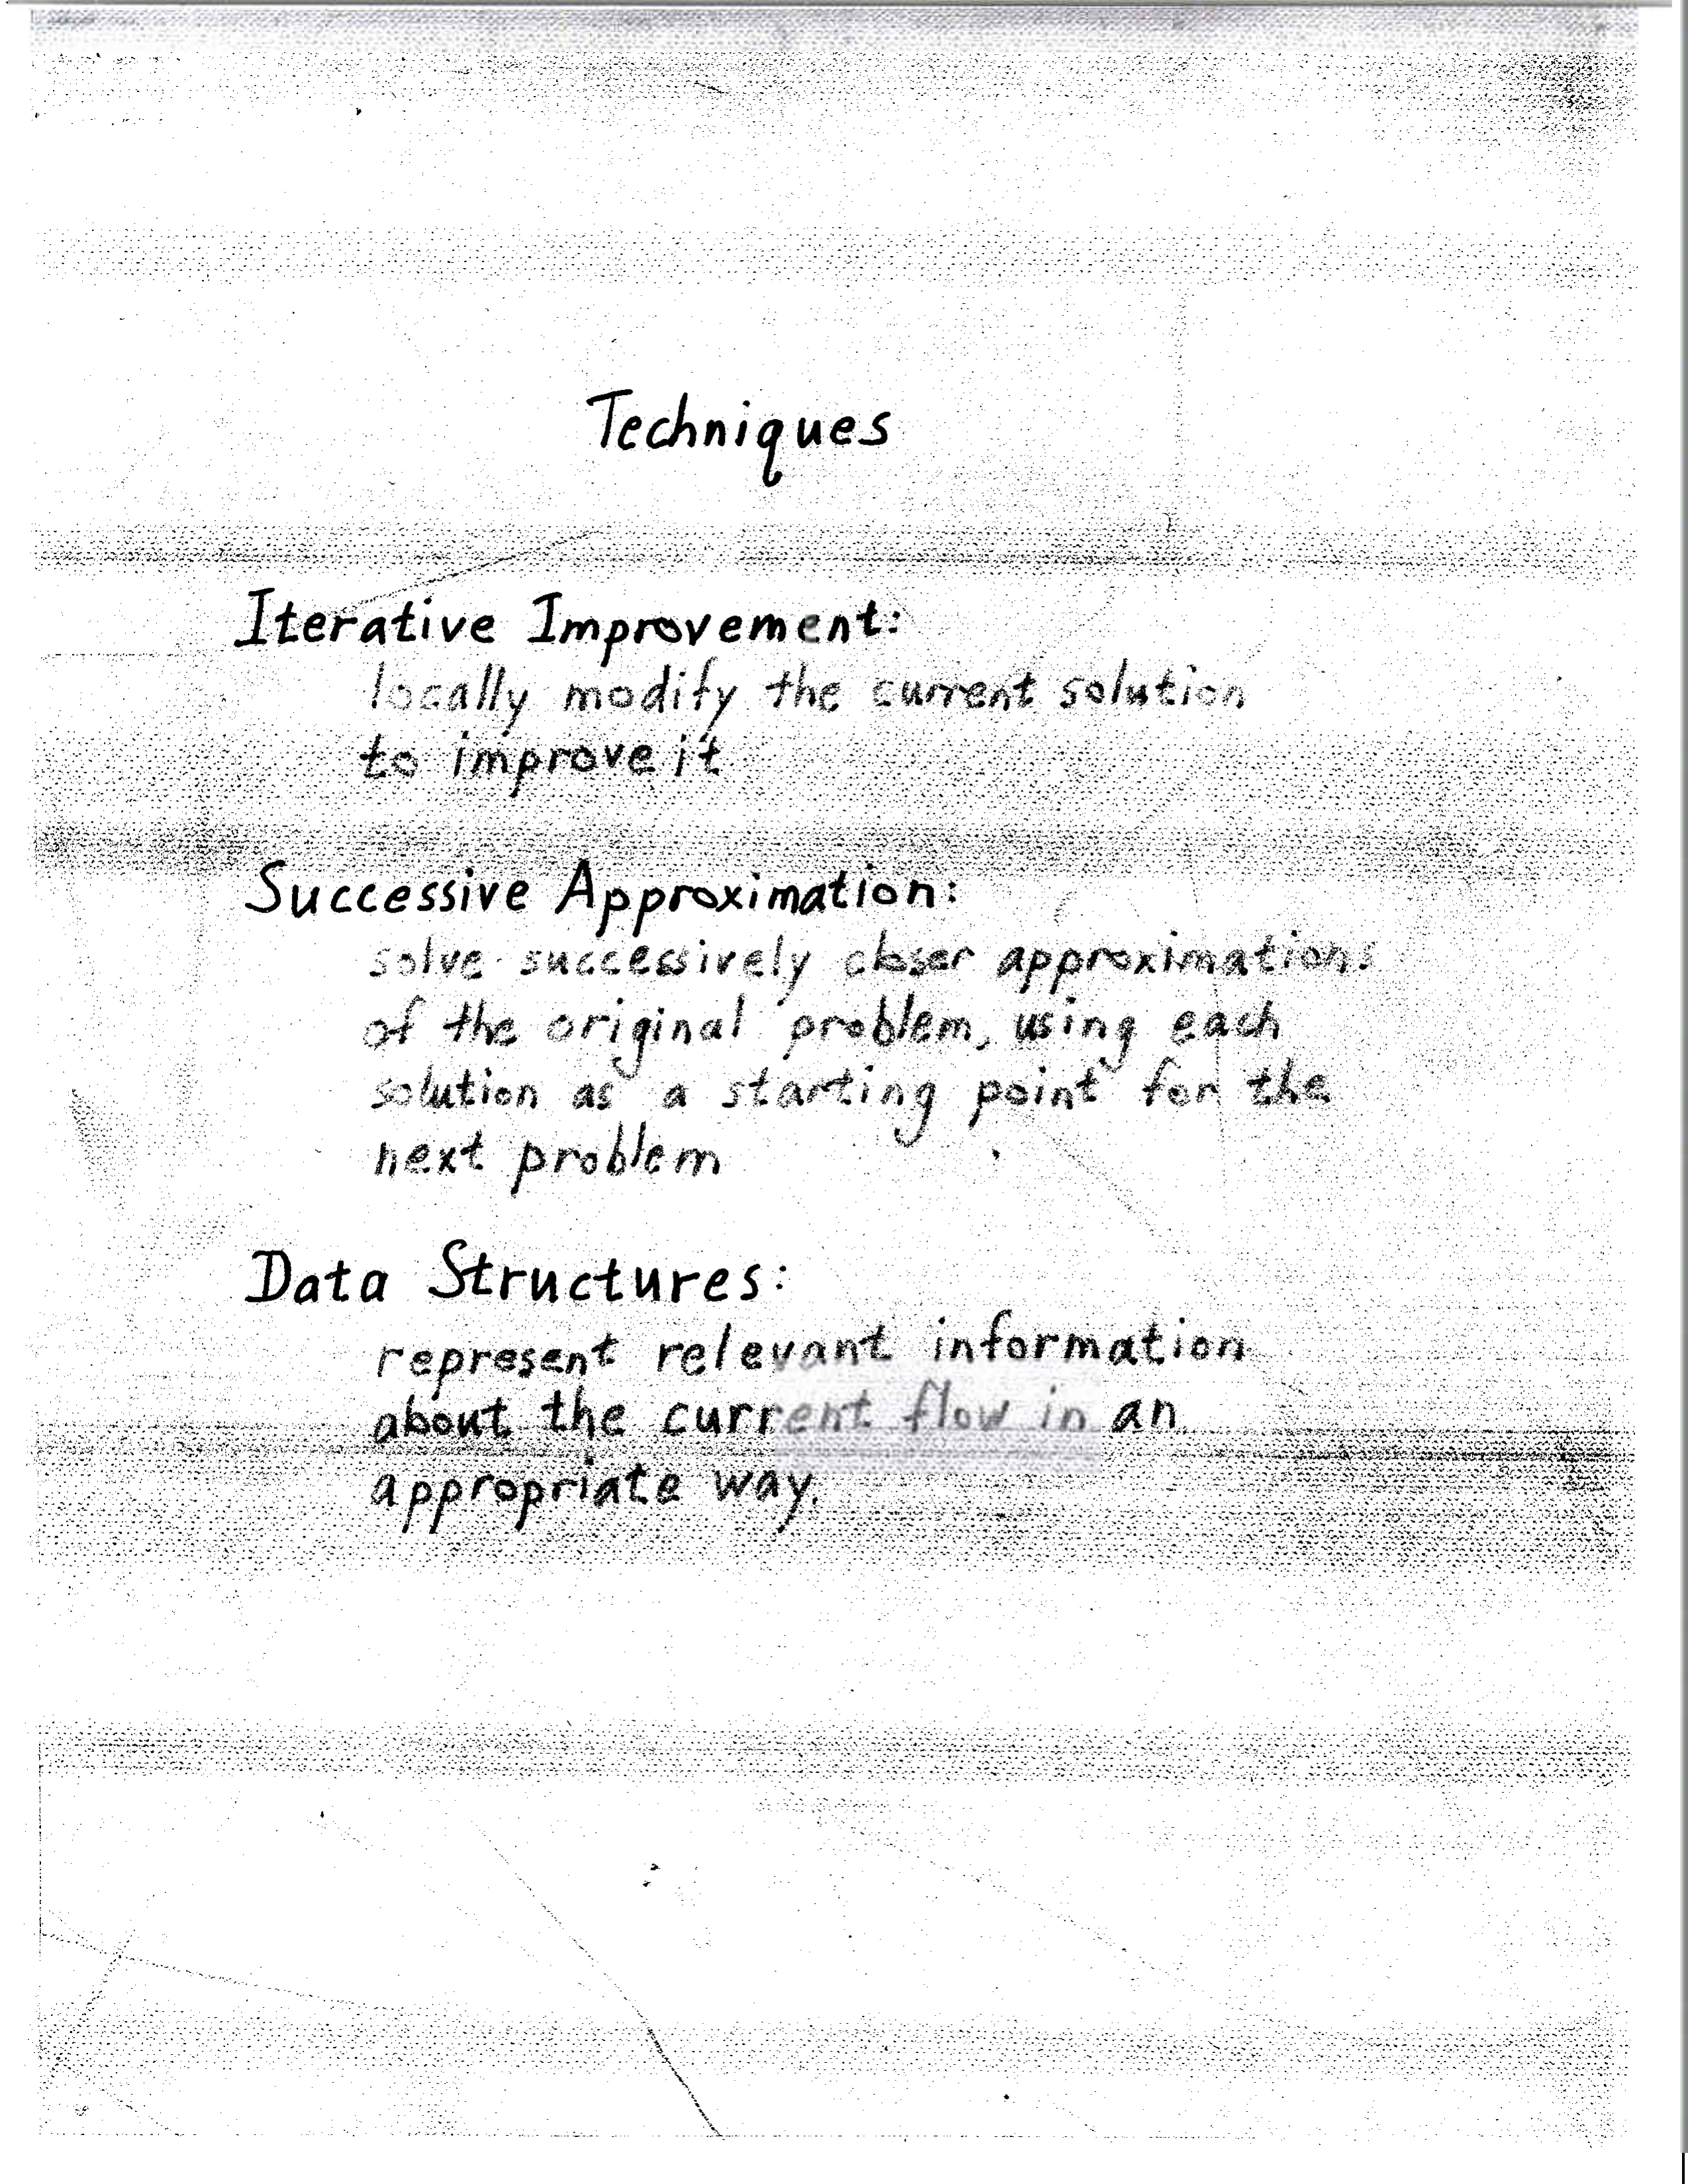 Techniques
Iterative Improvement:
locally modify the current solution
to improve it
Successive Approximation:
solve successively closer approximations
of the original problem, using each
solution as a starting point for the
next problem
Data Structures:
represent relevant information
about the current flow in an
appropriate way.